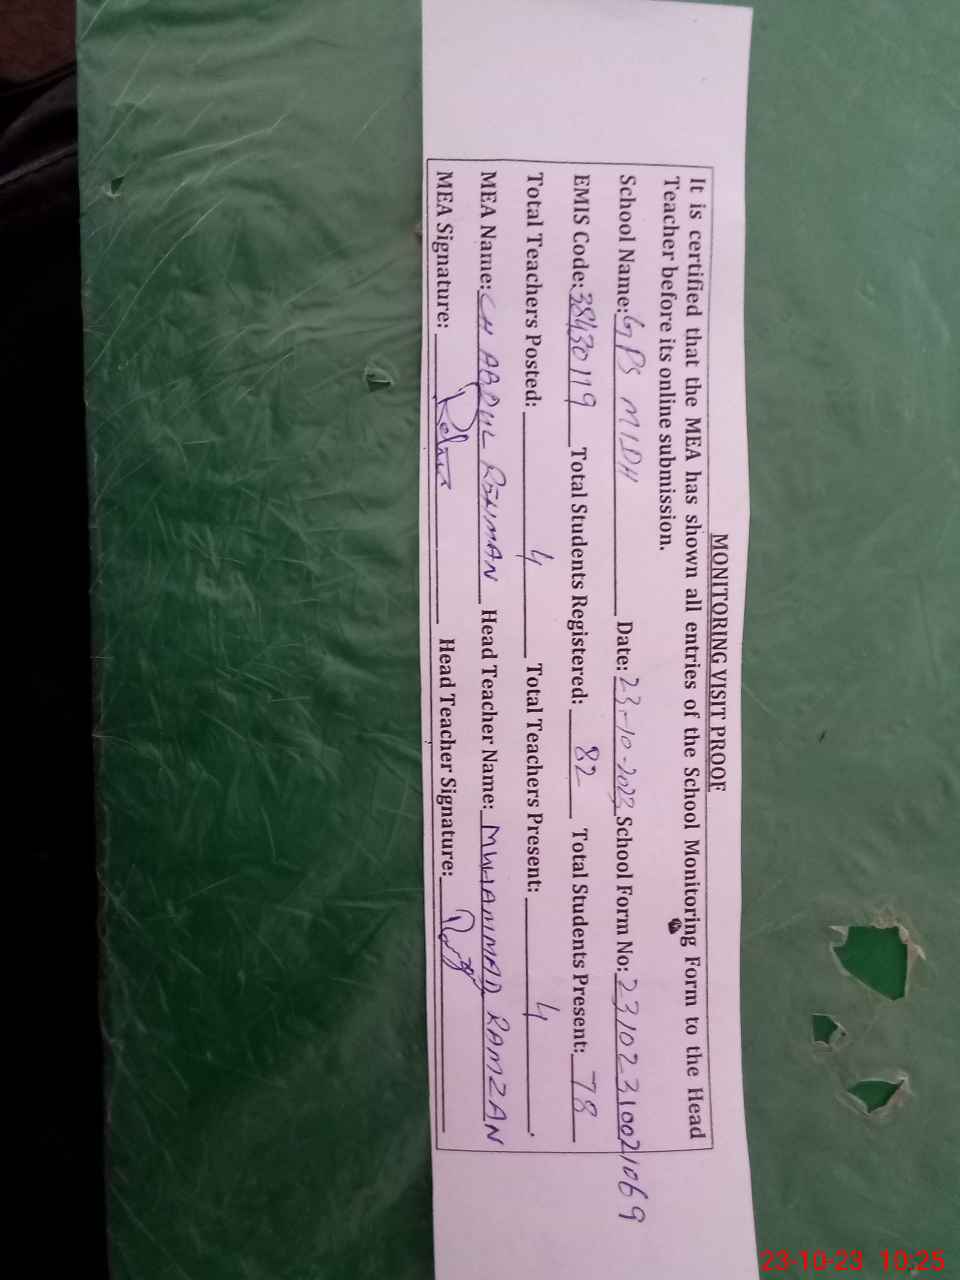 MONITORING VISIT PROOF
It is certified that the MEA has shown all entries of the School Monitoring Form to the Head
Teacher before its online submission.
School Name: GPS MIDH Date: 23-10-2023 School Form No: 23102310021069
EMIS Code: 38430119 Total Students Registered: 82 Total Students Present: 78
Total Teachers Posted: 4 Total Teachers Present: 4.
MEA Name: CH ABDUL REHMAN Head Teacher Name: MUHAMMAD RAMZAN
MEA Signature: Head Teacher Signature:
23-10-23 10:25